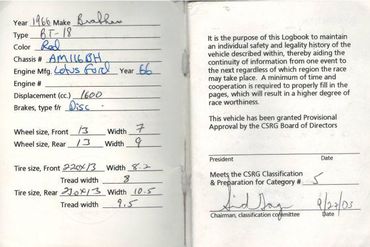 Year 1966 Make Brabham
Type BT-18
Color Red
Chassis # AM116BH
Engine Mfg. Lotus Ford Year 66
Engine #
Displacement (cc.) 1600
Brakes, type f/r Disc
Wheel size, Front 13 Width 7
Wheel size, Rear 13 Width 9
Tire size, Front 220x13 Width 8.2
Tread width 8
Tire size, Rear 230x13 Width 10.5
Tread width 9.5
It is the purpose of this Logbook to maintain
an individual safety and legality history of the
vehicle described within, thereby aiding the
continuity of information from one event to
the next regardless of which region the race
may take place. A minimum of time and
cooperation is required to properly fill in the
pages, which will result in a higher degree of
race worthiness.
This vehicle has been granted Provisional
Approval by the CSRG Board of Directors
President Date
Meets the CSRG Classification
& Preparation for Category # 5
9/27/03
Chairman, classification committee Date